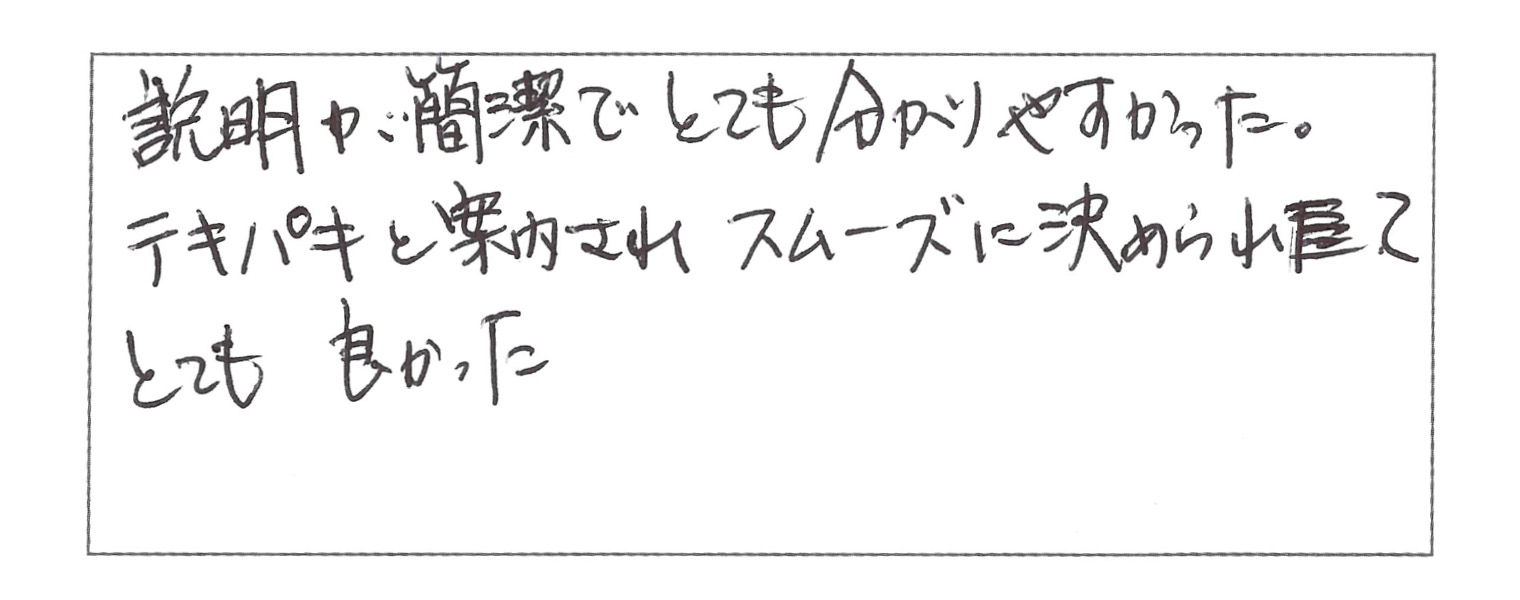 説明が簡潔でとても分かりやすかった。
テキパキと案内されスムーズに決められて
とても 良かった